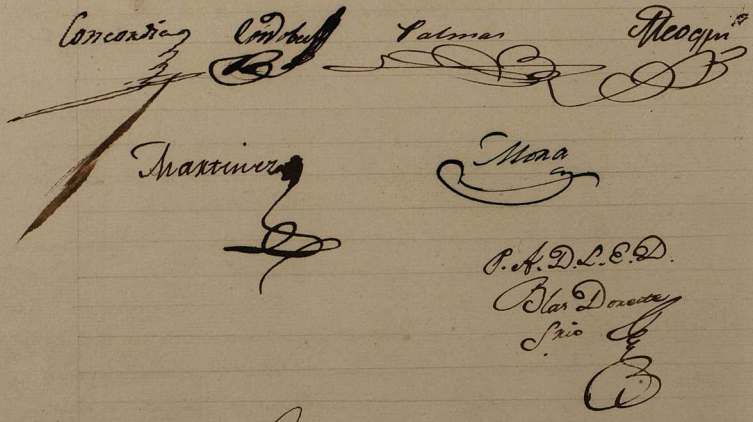 Concordia Cordoba Palmar Aleogui
Martinez Mora
P. A. D. L. E. D.
Blas Dorente
Srio